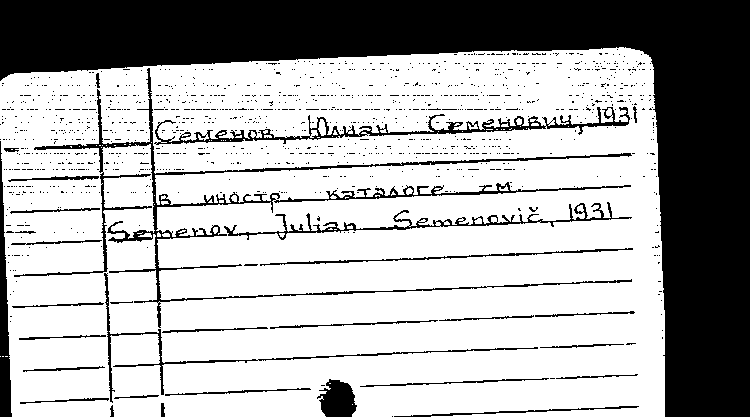 Семенов, Юлиан Семенович, 1931
в иностр. каталоге см.
Semenov, Julian Semenovič, 1931